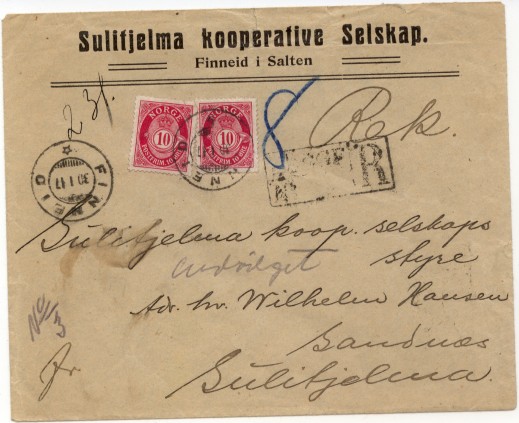 Sulitjelma kooperative Selskap.
Finneid i Salten
2 31.
NORGE NORGE
10 10
POSTFRIM. 10 ØRE POSTFRIM. 10 ØRE
8
Rek.
FINNEID
30 I 17
R
Sulitjelma koop. selskaps
styre
Adr. hr. Wilhelm Hansen
Sandnæs
No 3
fr.
Sulitjelma.